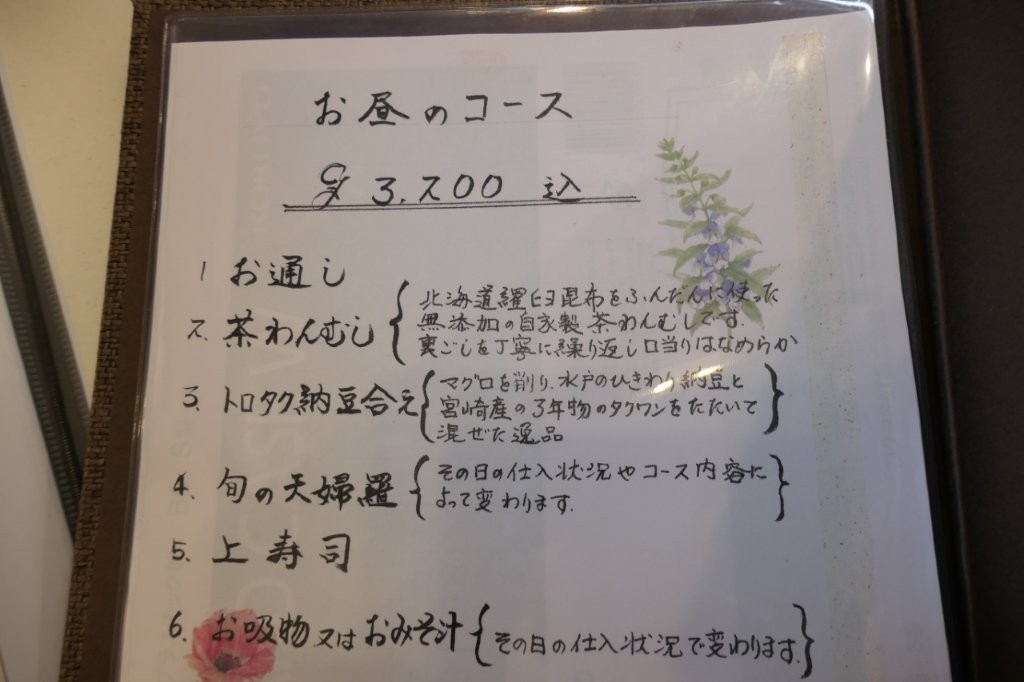 お昼のコース
¥ 3.200 込
1 お通し
2. 茶わんむし { 北海道羅臼昆布をふんだんに使った
無添加の自家製茶わんむしです.
裏ごしを丁寧に繰り返し口当りはなめらか
3. トロタク納豆合え { マグロを削り、水戸のひきわり納豆と
宮崎産の3年物のタクワンをたたいて
混ぜた逸品 }
4. 旬の天婦羅 { その日の仕入状況やコース内容に
よって変わります. }
5. 上寿司
6. お吸物又はおみそ汁 { その日の仕入状況で変わります. }